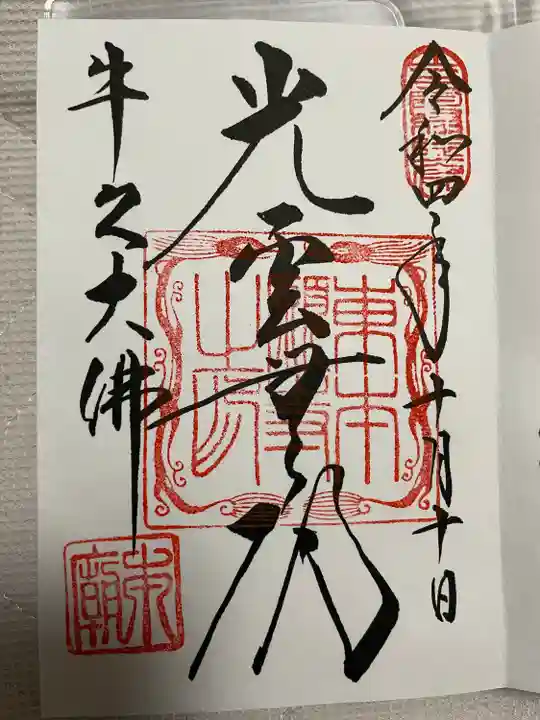 令和四年十月十日
光雲無碍
東本願寺之印
牛久大佛